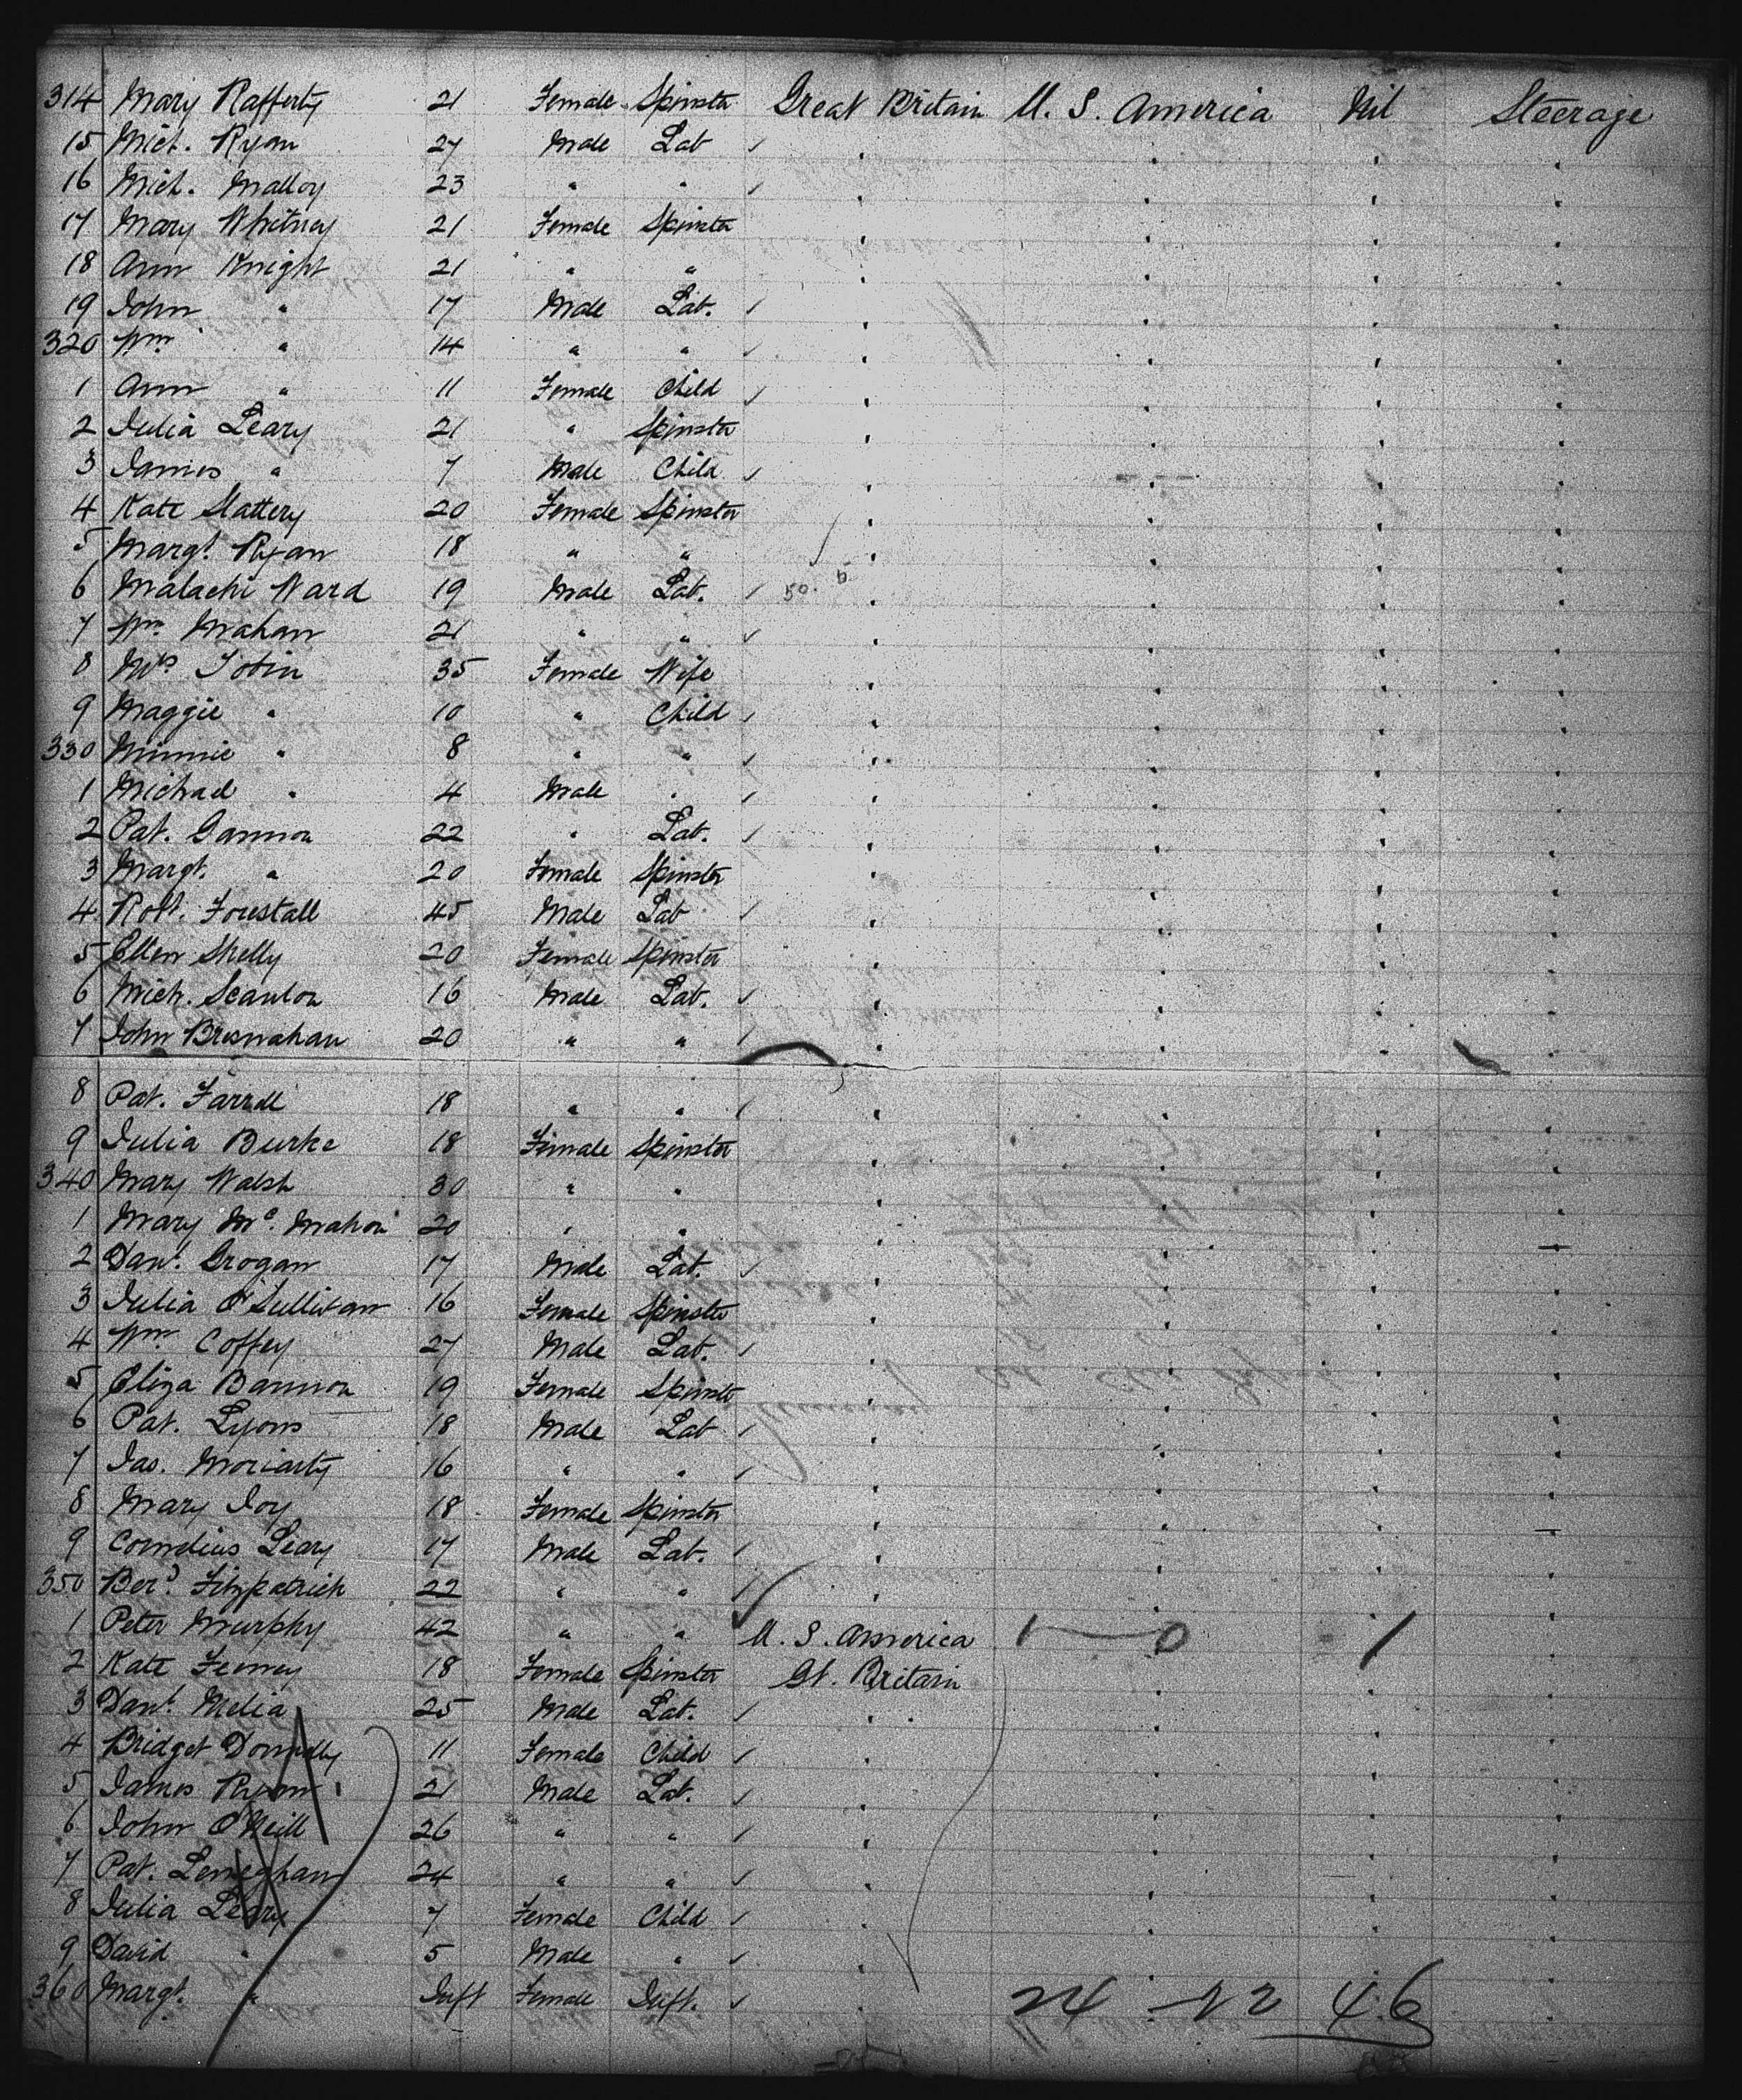 314 Mary Rafferty 21 Female Spinster Great Britain U. S. America Nil Steerage
15 Mich. Ryan 27 Male Lab
16 Mich. Malloy 23 " "
17 Mary Whitney 21 Female Spinster
18 Ann Knight 21 " "
19 John " 17 Male Lab.
320 Wm " 14 " "
1 Ann " 11 Female Child
2 Julia Leary 21 " Spinster
3 James " 7 Male Child
4 Kate Slattery 20 Female Spinster
5 Margt. Ryan 18 " "
6 Malachi Ward 19 Male Lab.
7 Wm. Mahan 21 " "
8 Mrs Tobin 35 Female Wife
9 Maggie " 10 " Child
330 Minnie " 8 " "
1 Michael " 4 Male "
2 Pat. Gannon 22 " Lab.
3 Margt. " 20 Female Spinster
4 Robt. Forestall 45 Male Lab
5 Ellen Shelly 20 Female Spinster
6 Mich. Scanlon 16 Male Lab.
7 John Bresnahan 20 " "
8 Pat. Farrell 18 " "
9 Julia Burke 18 Female Spinster
340 Mary Walsh 30 " "
1 Mary Mc. Mahon 20 " "
2 Danl. Grogan 17 Male Lab.
3 Julia O'Sullivan 16 Female Spinster
4 Wm. Coffey 27 Male Lab.
5 Eliza Bannon 19 Female Spinster
6 Pat. Lyons 18 Male Lab
7 Jas. Moriarty 16 " "
8 Mary Joy 18 Female Spinster
9 Cornelius Leary 17 Male Lab.
350 Berd. Fitzpatrick 22 " "
1 Peter Murphy 42 " " U. S. America 1 0 1
2 Kate Feeney 18 Female Spinster Gt. Britain
3 Danl. Melia 25 Male Lab.
4 Bridget Donnelly 11 Female Child
5 James Ryan 21 Male Lab.
6 John O'Neill 26 " "
7 Pat. Leneghan 24 " "
8 Julia Leary 7 Female Child
9 David " 5 Male "
360 Margt. " Inft Female Inft. 24 22 46